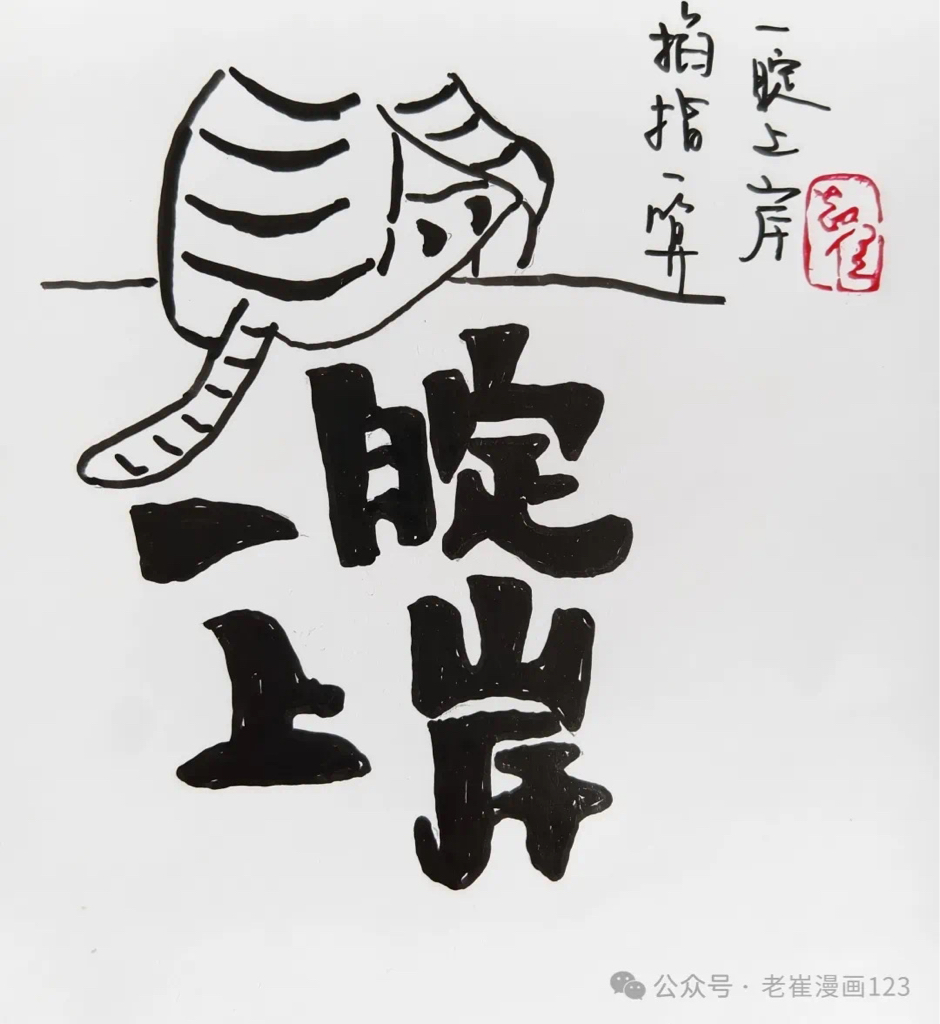 一腚上岸
掐指一算
老崔
一腚
上岸
公众号·老崔漫画123